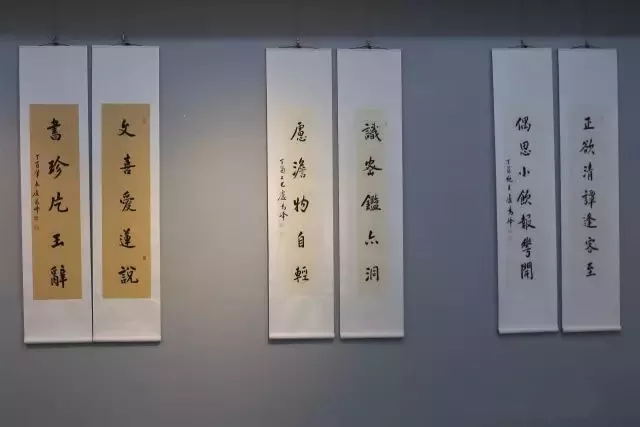 正欲清譚逢客至
偶思小飲報華開
丁酉
識密鑑亦洞
慮澹物自輕
丁酉上巳盧為峰
文喜愛蓮說
書珍片玉辭
丁酉